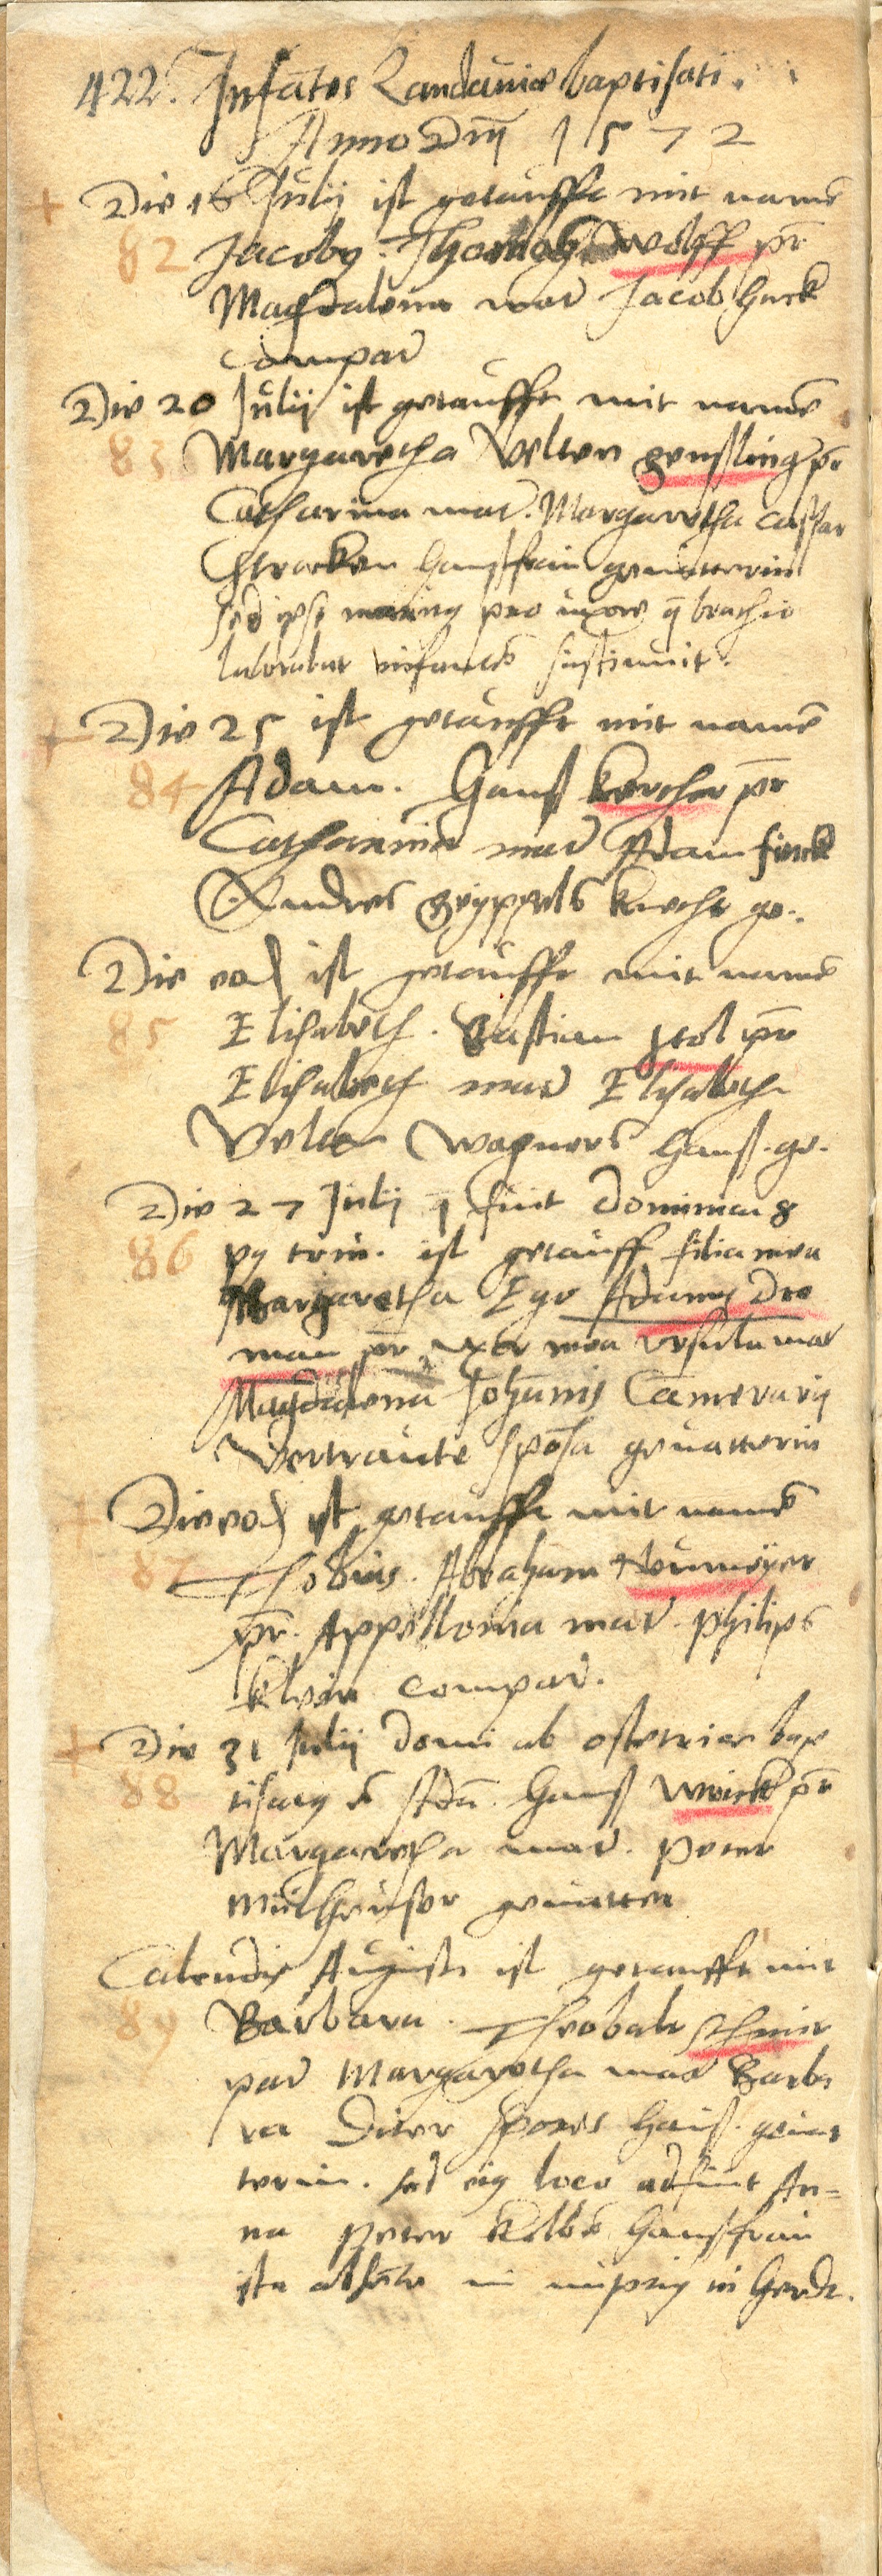 422. Infātes Landaviae baptisati.
Anno Dnj 1572
+ Die 16 Julij ist getaufft mit namē
82 Jacobg. Thomas Wolff pr̄
Magdalena mat Jacob Hurk
compar
Die 20 Julij ist getaufft mit namē
83 Margaretha Velten genssling pr̄
Catharina mat. Margaretha caspar
Stracken haussfrau geuatterin
sed ipse maritg pro uxore q̄ brachio
laborabat infantē sustinuit.
+ Die 25 ist getaufft mit namē
84 Adam. Hanss Kercher pr̄
Catharina mat Adam finck
Andres geyppels knecht ge.
Die eod ist getaufft mit namē
85 Elisabeth. Bastian stol pr̄
Elisabeth mat Elisabeth
Velten Wagners hauss. ge.
Die 27 Julij q̄ fuit dominica 8
86 pg trin. ist getauff filia mea
Margaretha Ego Adamg Dre
man pr̄ uxor mea ursula mat
Magdalena Johānis Camerarij
Vertraute sponsa geuatterin
Die eod ist getaufft mit namē
87 Thobias. Abraham Neumeyer
pr̄. Appellonia mat. Philips
klein compar.
+ Die 31 Julij domi ab obstetrice bap
88 tisatg ē Adā. Hanss Weick pr̄
Margaretha mat. Peter
Mülheuser geuatter
Calendis Augusti ist getaufft mit
89 Barbara. Theobalt schmir
pat Margaretha mat Barba
ra Diter spores hauss. geuat
terin. sed eig loco adfuit An=
na Peter Kolbē haussfrau
ista absēte in nuptijs in Herdt.